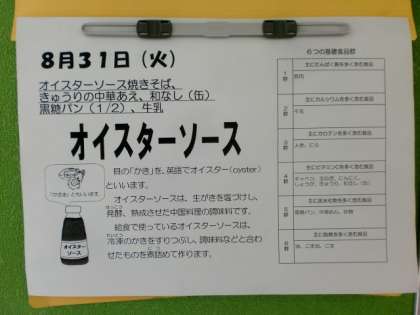 8月31日（火）
オイスターソース焼きそば、
きゅうりの中華あえ、和なし（缶）
黒糖パン（1/2）、牛乳
オイスターソース
貝の「かき」を、英語でオイスター(oyster)
といいます。
オイスターソースは、生がきを塩づけし、
はっこう
発酵、熟成させた中国料理の調味料です。
給食で使っているオイスターソースは、
れいとう
冷凍のかきをすりつぶし、調味料などと合わ
せたものを煮詰めて作ります。
「かき油」ともいいます。
オイスター
ソース
6つの基礎食品群
1群
主にたんぱく質を多く含む食品
豚肉
2群
主にカルシウムを多く含む食品
牛乳
3群
主にカロテンを多く含む食品
人参、にら
4群
主にビタミンCを多く含む食品
キャベツ、玉ねぎ、にんにく、
しょうが、きゅうり、和なし（缶）
5群
主に炭水化物を多く含む食品
黒糖パン、中華めん、砂糖
6群
主に脂質を多く含む食品
油、ごま油、ごま